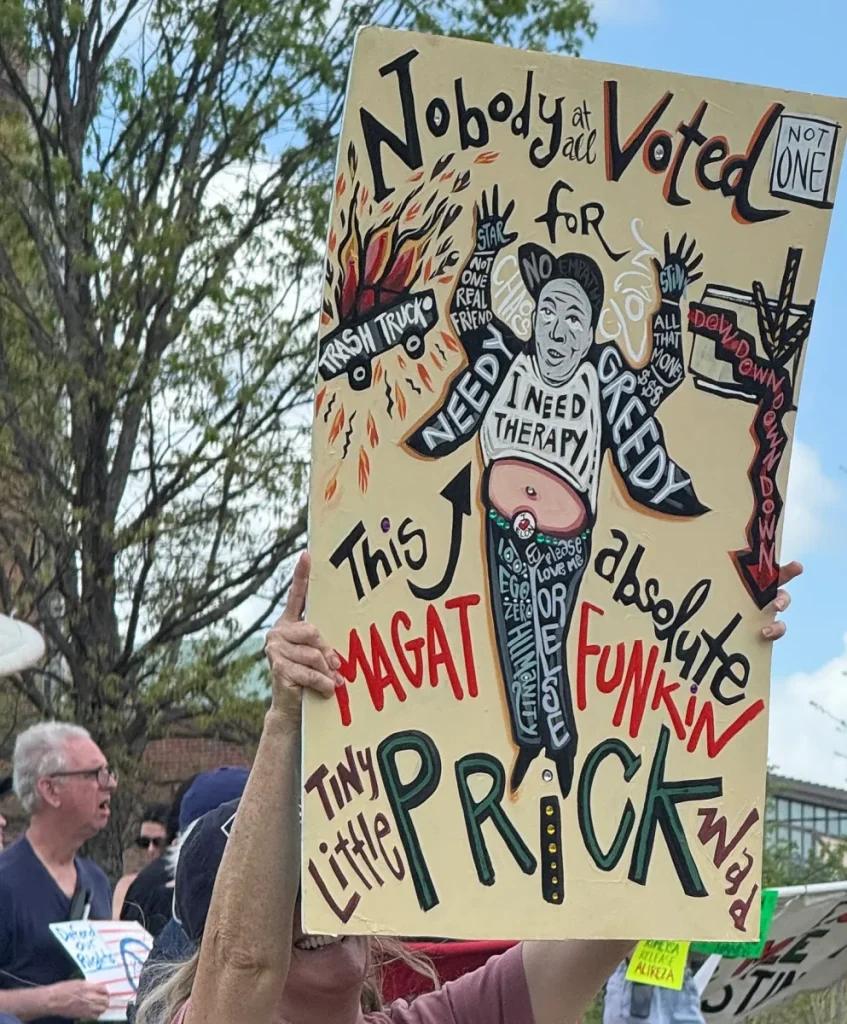 Nobody at all Voted
NOT ONE
for
STAR
NOT ONE REAL FRIEND
NO EMPATHY
STIN
ALL THAT MONEY
$$$
TRASH TRUCK
NEEDY
GREEDY
I NEED THERAPY
DOWN DOWN DOWN DOWN DOWN
This
absolute
100% EGO ZERO
please love me
OR ELSE
MAGAT
FUNKIN
Tiny Little
PRiCK
Wad
Defend our Rights
RELEASE ALIREZA